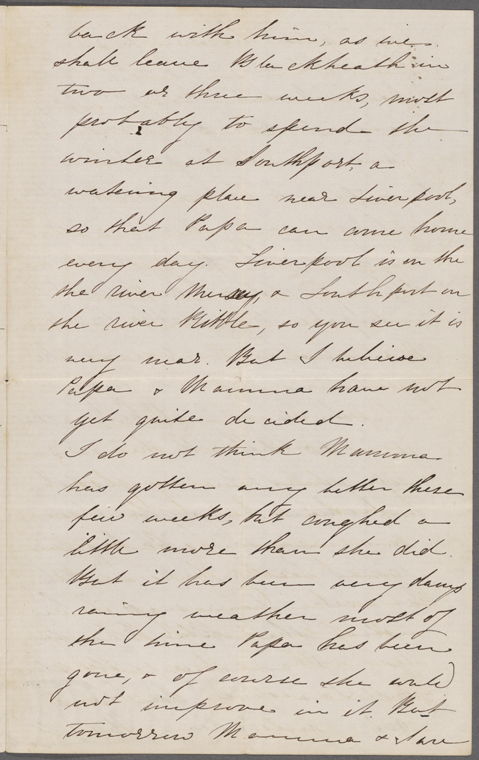 back with him, as we
shall leave Blackheath in
two or three weeks, most
probably to spend the
winter at Southport, a
watering place near Liverpool,
so that Papa can come home
every day. Liverpool is on the
the river Mersey, & Southport on
the river Ribble, so you see it is
very near. But I believe
Papa & Mamma have not
yet quite decided.
I do not think Mamma
has gotten any better these
few weeks, but coughed a
little more than she did.
But it has been very damp
rainy weather most of
the time Papa has been
gone, & of course she could
not improve in it. But
tomorrow Mamma & I are